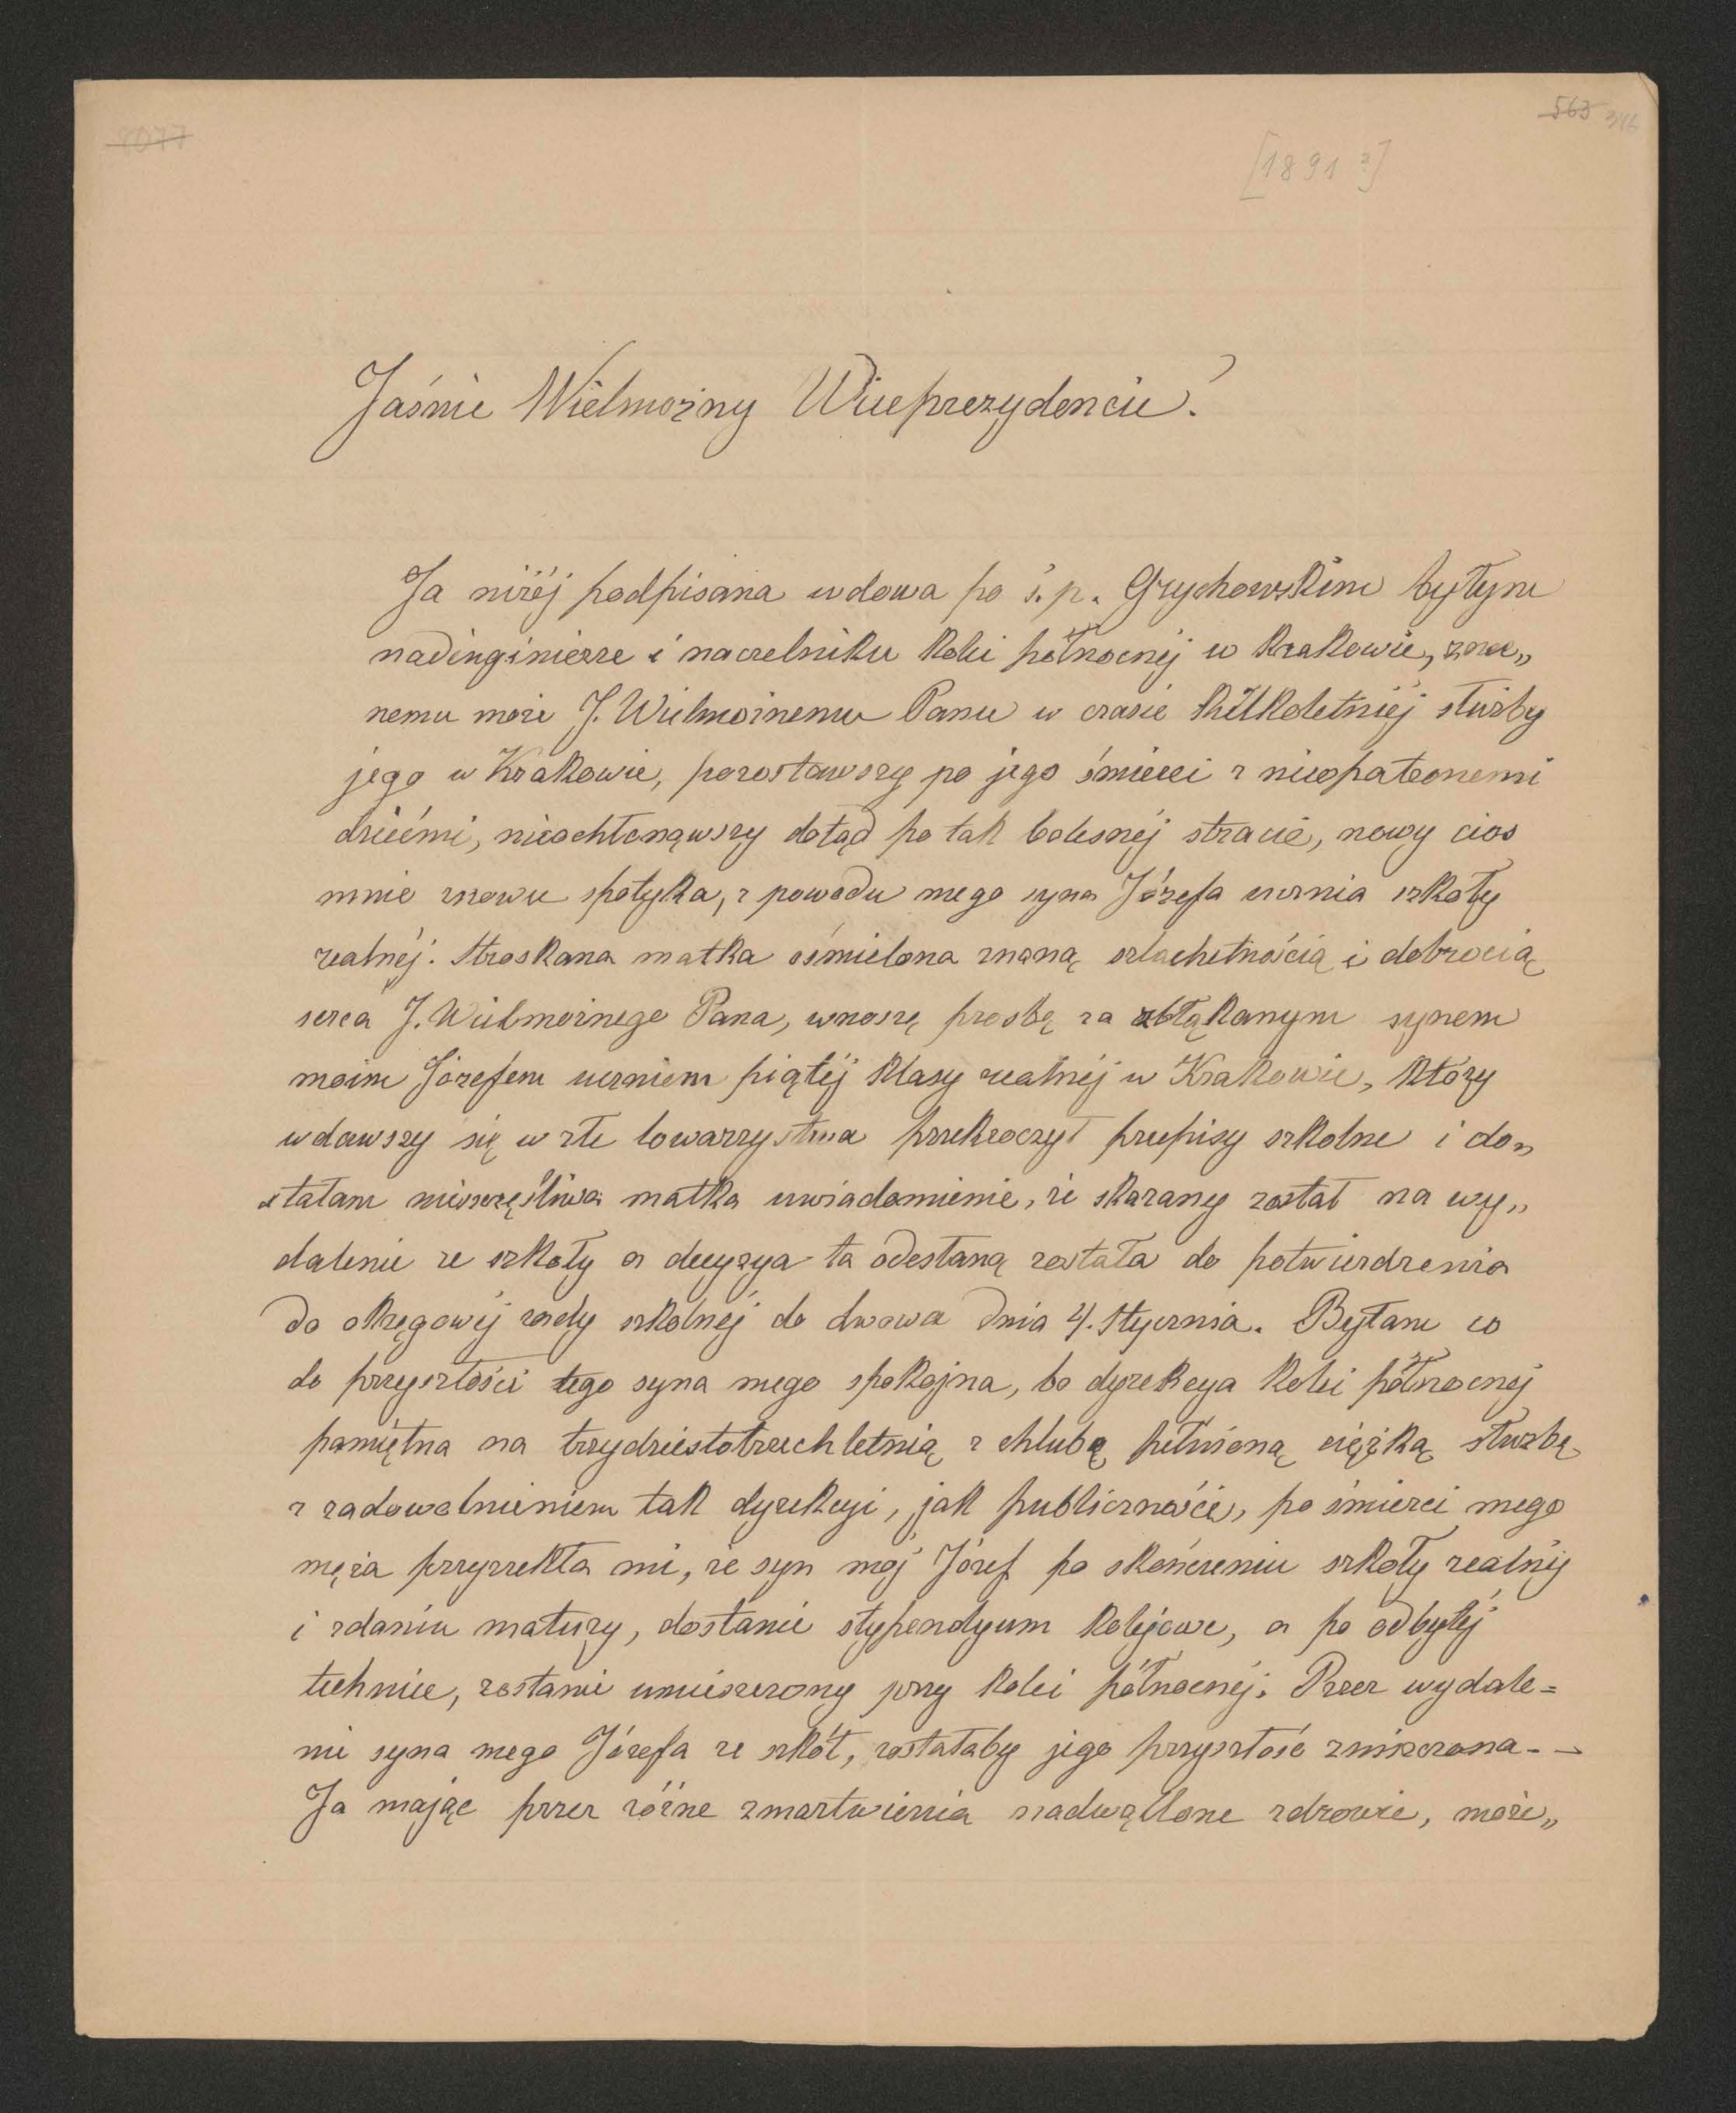 8077
563
[1891?]
Jaśnie Wielmożny Wiceprezydencie!
Ja niżéj podpisana wdowa po ś.p. Grychowskim byłym
nadinginierze i naczelniku kolei północnéj w Krakowie, zna„
nemu może J. Wielmożnemu Panu w czasie kilkoletniéj służby
jego w Krakowie, pozostawszy po jego śmierci z nieopatronemi
dziećmi, nieochłonąwszy dotąd po tak bolesnéj stracie, nowy cios
mnie znowu spotyka, z powodu mego syna Józefa ucznia szkoły
realnéj. Stroskana matka ośmielona znaną szlachetnością i dobrocią
serca J. Wielmożnego Pana, wnoszę prośbę za zbłąkanym synem
moim Józefem uczniem piątéj klasy realnéj w Krakowie, który
wdawszy się w złe towarzystwa przekroczył przepisy szkolne i do„
stałam nieszczęśliwa matka uwiadomienie, że skazany został na wy„
dalenie ze szkoły a decyzya ta odesłaną została do potwierdzenia
do okręgowéj rady szkolnéj do Lwowa dnia 4. Stycznia. Byłam co
do przyszłości tego syna mego spokojna, bo dyrekcya kolei północnéj
pamiętna na trzydziestotrzechletnią z chlubą pełnioną ciężką służbę
z zadowolnieniem tak dyrekcyi, jak publiczności, po śmierci mego
męża przyrzekła mi, że syn mój Józef po skończeniu szkoły realnéj
i zdaniu matury, dostanie stypendyum kolejowe, a po odbytéj
technice, zostanie umieszczony przy kolei północnéj. Przez wydale=
nie syna mego Józefa ze szkół, zostałaby jego przyszłość zniszczona. -
Ja mając przez różne zmartwienia nadwątlone zdrowie, może„